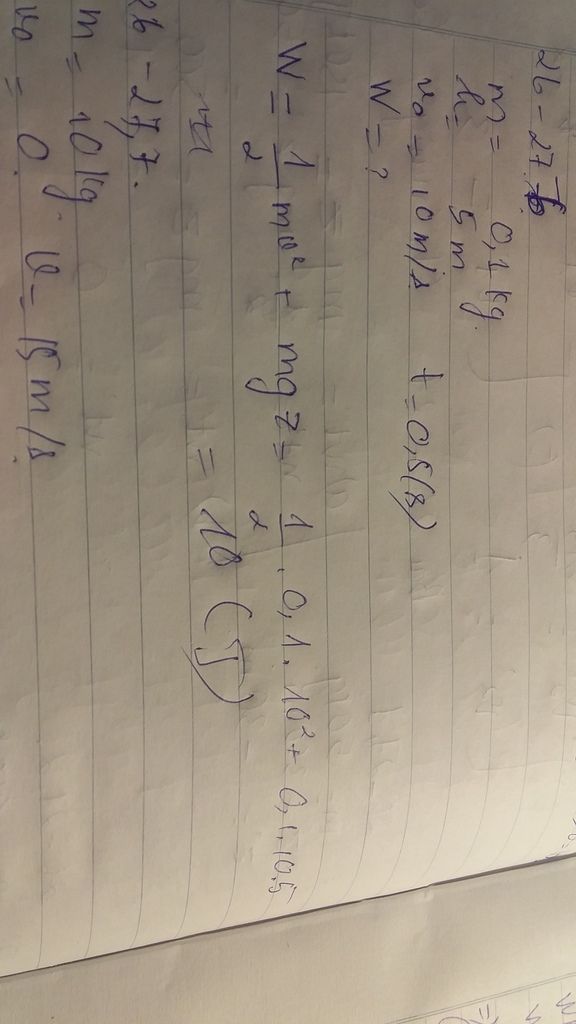 26 - 27.6.
m = 0,1 kg.
h = 5 m
v₀ = 10 m/s t = 0,5(s)
W = ?
W = 1/2 mv² + mgz = 1/2 . 0,1 . 10² + 0,1.10.5
= 10 (J)
26 - 27,7.
m = 10 kg.
v₀ = 0. v = 15 m/s.